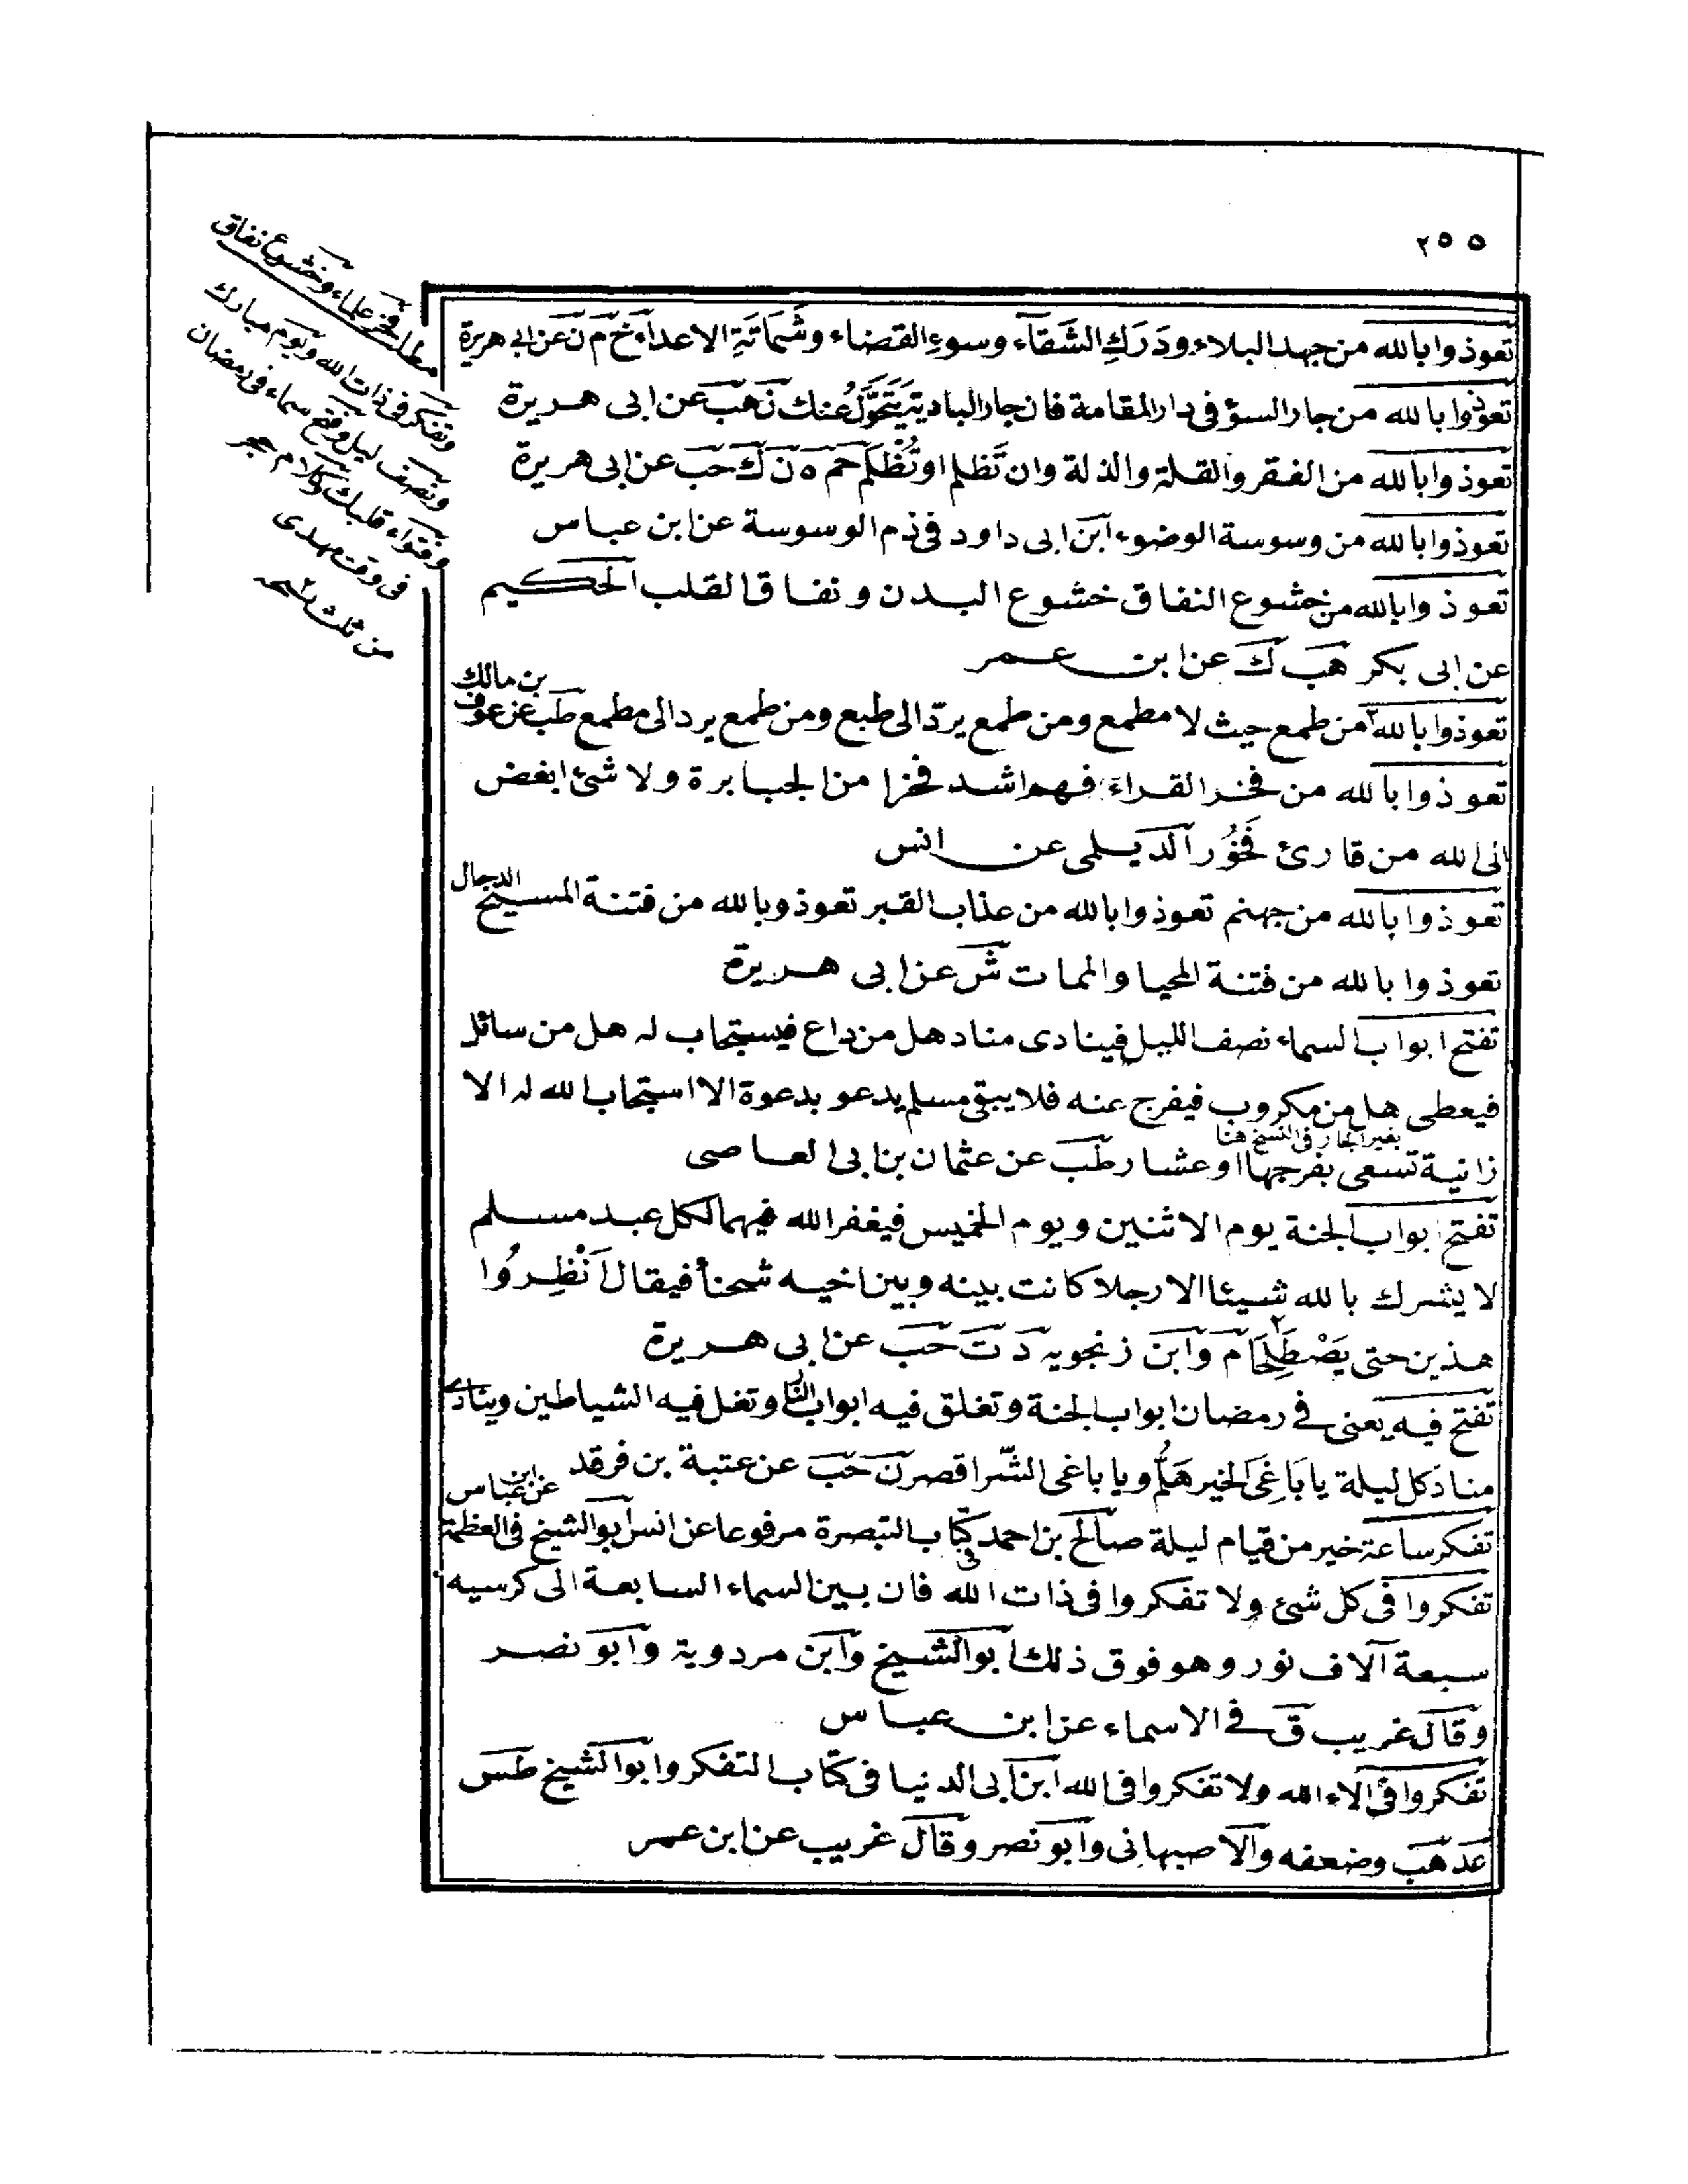 ٢٥٥
تعوذوا بالله من جهد البلاء ودَرَكِ الشَقآء وسوءِ القضاء وشَمَاتَةِ الاعداء خ م ن عن ابى هريرة
تعوذوا بالله من جار السؤ فى دار المقامة فان جار البادية يَتَحَوَّلُ عنك ن هب عن ابى هريرة
تعوذوا بالله من الفقر والقلة والذلة وان تَظلم او تُظْلَم حم ه ن ك حب عن ابى هريرة
تعوذوا بالله من وسوسة الوضوء ابن ابى داود فى ذم الوسوسة عن ابن عباس
تعوذوا بالله من خشوع النفاق خشوع البدن ونفاق القلب الحكيم
عن ابى بكر هب ك عن ابن عمر
تعوذوا بالله من طمع حيث لا مطمع ومن طمع يردّ الى طبع ومن طمع يرد الى مطمع طب عن عوف بن مالك
تعوذوا بالله من فخر القراء فهم اشد فخرا من الجبابرة ولا شئ ابغض
الى الله من قارئ فَخُور الديلمى عن انس
تعوذوا بالله من جهنم تعوذوا بالله من عذاب القبر تعوذوبالله من فتنة المسيح الدجال
تعوذوا بالله من فتنة المحيا والممات ش عن ابى هريرة
تفتح ابواب السماء نصف الليل فينادى مناد هل من داع فيستجاب له هل من سائل
فيعطى هل من مكروب فيفرج عنه فلا يبقى مسلم يدعو بدعوة الا استجاب الله له الا
بغير الجار فى النسخ هنا
زانية تسعى بفرجها او عشار طب عن عثمان بن ابى العاصى
تفتح ابواب الجنة يوم الاثنين ويوم الخميس فيغفر الله فيهما لكل عبد مسلم
لا يشرك بالله شيئا الا رجلا كانت بينه وبين اخيه شحنأ فيقال اَنْظِرُوا
هذين حتى يَصْطَلِحَا م وابن زنجويه د ت حب عن ابى هريرة
تفتح فيه يعنى فى رمضان ابواب الجنة وتغلق فيه ابواب النار وتغل فيه الشياطين وينادى
مناد كل ليلة يا بَاغِىَ الخير هَلُمَّ ويا باغى الشّر اقصر ن حب عن عتبة بن فرقد
تفكر ساعة خير من قيام ليلة صالح بن احمد فى كتاب التبصرة مرفوعا عن انس ابو الشيخ فى العظمة عن ابن عباس
تفكروا فى كل شئ ولا تفكروا فى ذات الله فان بين السماء السابعة الى كرسيه
سبعة آلاف نور وهو فوق ذلك ابو الشيخ وابن مردوية وابو نصر
وقال غريب ق فى الاسماء عن ابن عباس
تفكروا فى آلاء الله ولا تفكروا فى الله ابن ابى الدنيا فى كتاب التفكر وابو الشيخ طس
عد هب وضعفه والاصبهانى وابو نصر وقال غريب عن ابن عمر
مطلب فخر علماء وخشوع نفاق
وتفكر فى ذات الله ويوم مبارك
ونصف ليل وفتح سماء فى رمضان
فى وقت مهدى